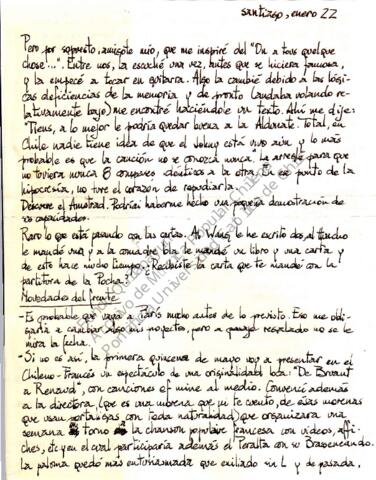 santiago, enero 22
Pero por supuesto, amigote mío, que me inspiré del "On a tous quelque
chose...". Entre nos, la escuché una vez, antes que se hiciera famosa,
y la empecé a tocar en guitarra. Algo la cambié debido a las lógi-
cas deficiencias de la memoria y de pronto (andaba volando re-
lativamente bajo) me encontré haciéndole un texto. Ahí me dije:
"Tiens, a lo mejor le podría quedar buena a la Aldunate. Total, en
Chile nadie tiene idea de que el Johny está vivo aún y lo más
probable es que la canción no se conozca nunca. La arreglé para que
no tuviera nunca 8 compases idénticos a la otra. En ese punto de la
hipocresía, no tuve el corazón de repudiarla.
el Amstrad. Podrías haberme hecho una pequeña demostración de
sus capacidades.
Raro lo que está pasando con las cartas. Al le he escrito dos, al
le mandé una y a la comadre le mandé un libro y una carta y
de esto hace mucho tiempo. ¿Recibiste la carta que te mandé con la
partitura de la Pocha?
Novedades del frente
- Es probable que vaya a París mucho antes de lo previsto. Eso me obli-
garía a cambiar algunos proyectos, pero a pasaje regalado no se le
mira la fecha.
- Si no es así, la primera quincena de mayo voy a presentar en el
Chileno-Francés un espectáculo de una originalidad loca: "De Bruant
a Renaud", con canciones et mine al medio. Convencí además
a la directora (que es una morena que ni te cuento, de esas morenas
que usan portaligas con toda naturalidad) que organizara una
semana en torno a la chanson populaire francesa con videos, affi-
ches, etc y en el cual participaría además el Peralta con su Brassenceando.
La paloma quedó más entusiasmada que exiliado en L y de pasada,
Archivo de Música Popular Chilena
Pontificia Universidad Católica de Chile